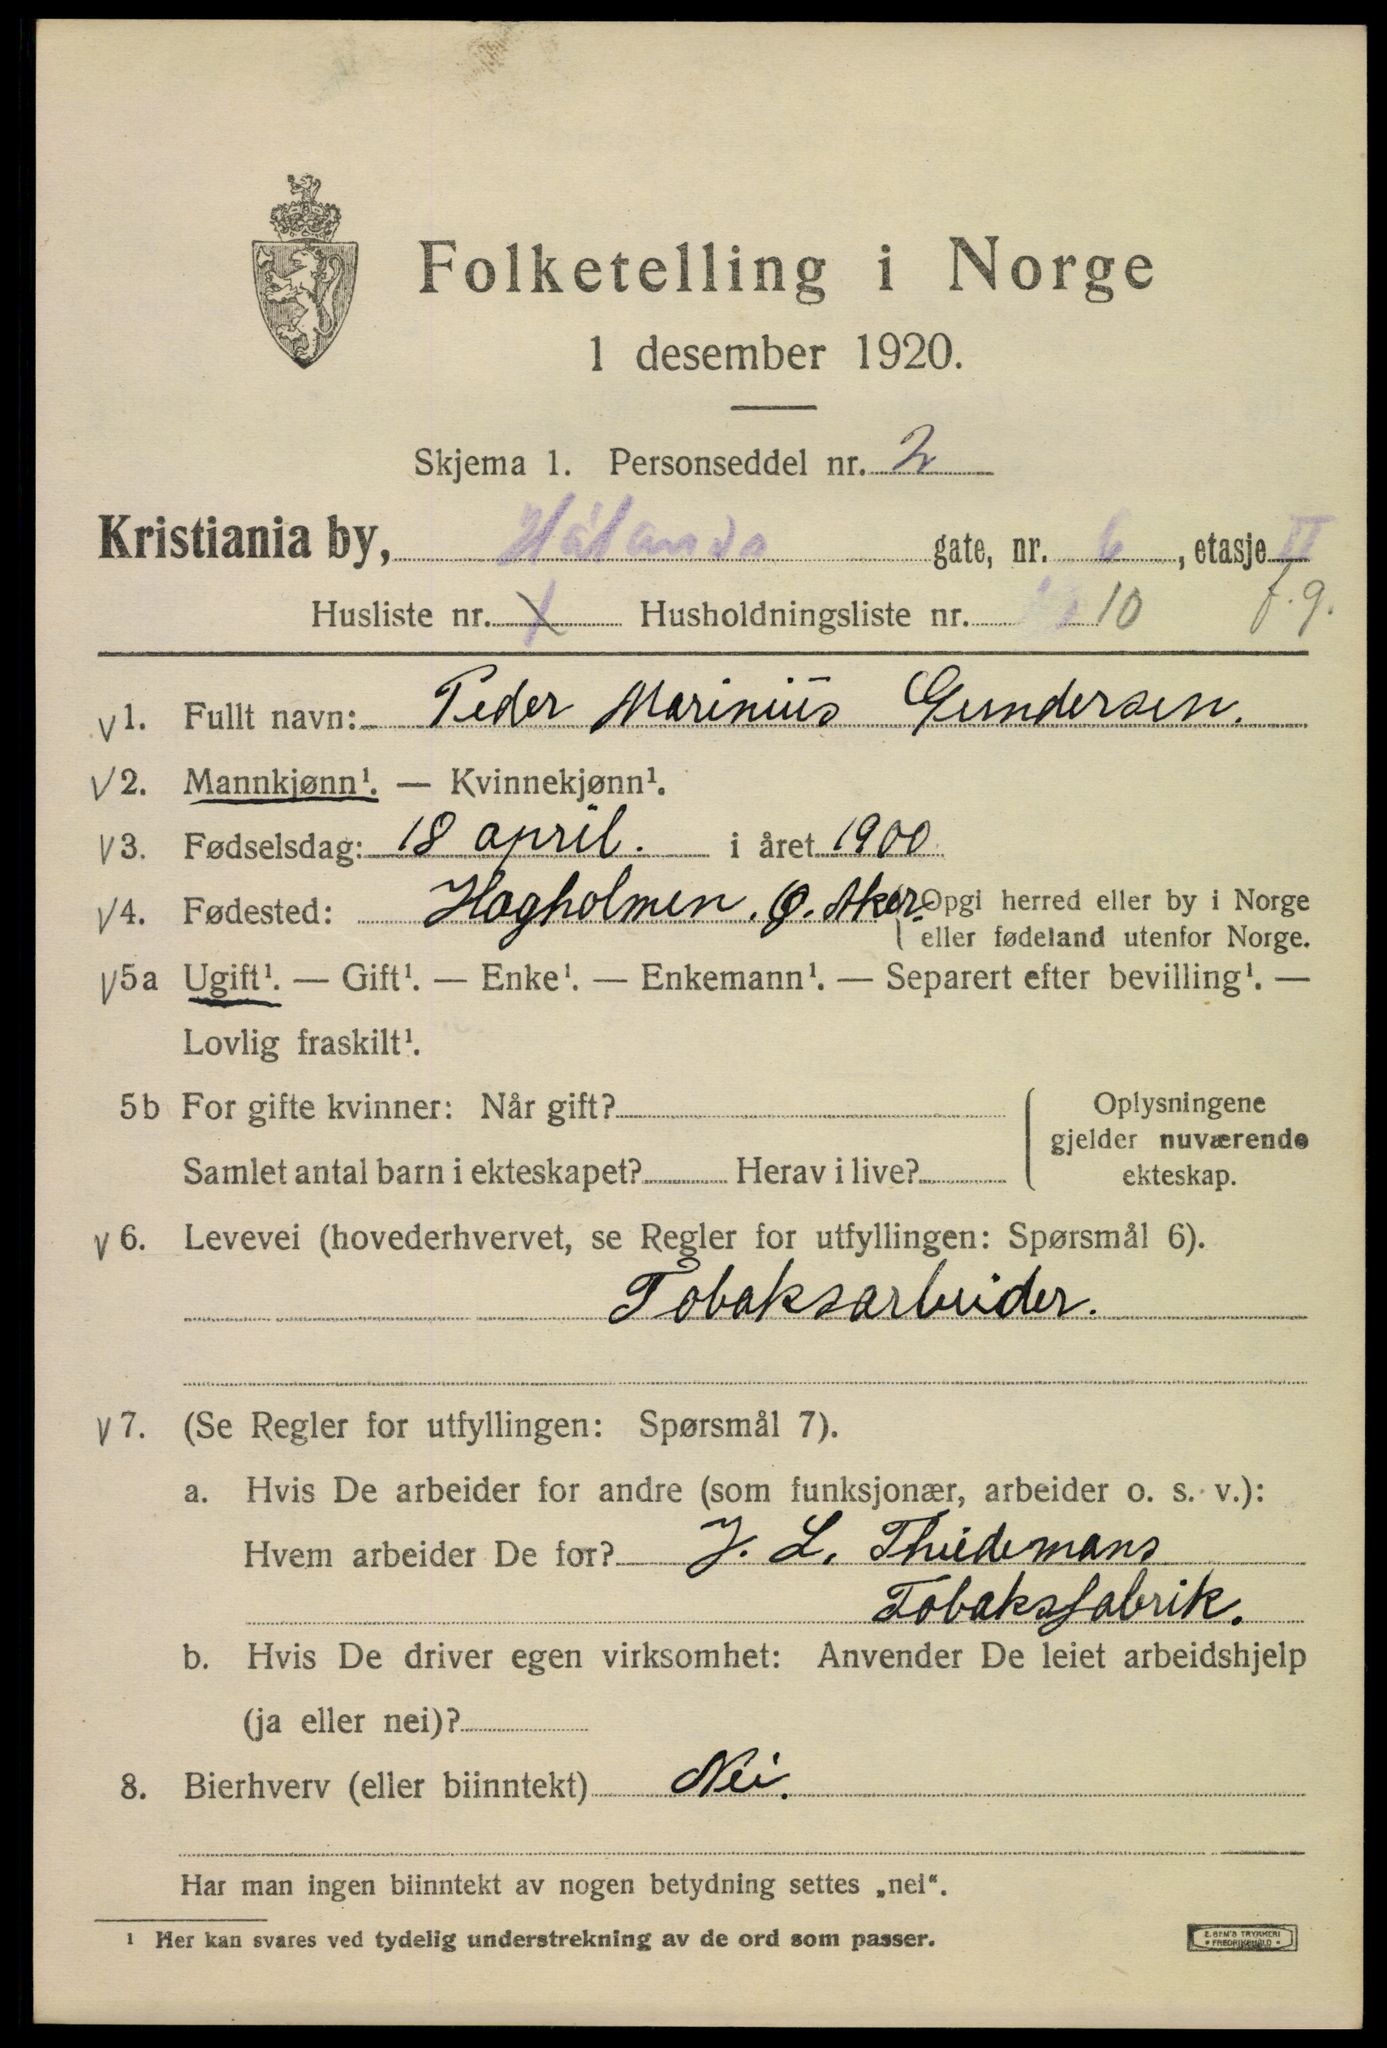 Folketelling i Norge
1 desember 1920.
Skjema 1. Personseddel nr. 2
Kristiania by, gate, nr. 6, etasje II
Husliste nr. 1 Husholdningsliste nr. 10 f.g.
v 1. Fullt navn: Peder Marinius Gundersen.
v 2. Mannkjønn¹. — Kvinnekjønn¹.
v 3. Fødselsdag: 18 april. i året 1900
v 4. Fødested: Hagholmen. Ø. Aker. Opgi herred eller by i Norge
eller fødeland utenfor Norge.
v 5a Ugift¹. — Gift¹. — Enke¹. — Enkemann¹. — Separert efter bevilling¹. —
Lovlig fraskilt¹.
5b For gifte kvinner: Når gift?
Samlet antal barn i ekteskapet? Herav i live?
Oplysningene
gjelder nuværende
ekteskap.
v 6. Levevei (hovederhvervet, se Regler for utfyllingen: Spørsmål 6).
Tobaksarbeider.
v 7. (Se Regler for utfyllingen: Spørsmål 7).
a. Hvis De arbeider for andre (som funksjonær, arbeider o. s. v.):
Hvem arbeider De for? J. L. Thiedemans
Tobaksfabrik.
b. Hvis De driver egen virksomhet: Anvender De leiet arbeidshjelp
(ja eller nei)?
8. Bierhverv (eller biinntekt) Nei.
Har man ingen biinntekt av nogen betydning settes „nei“.
¹ Her kan svares ved tydelig understrekning av de ord som passer.
E. SEM'S TRYKKERI
• FREDRIKSHALD •